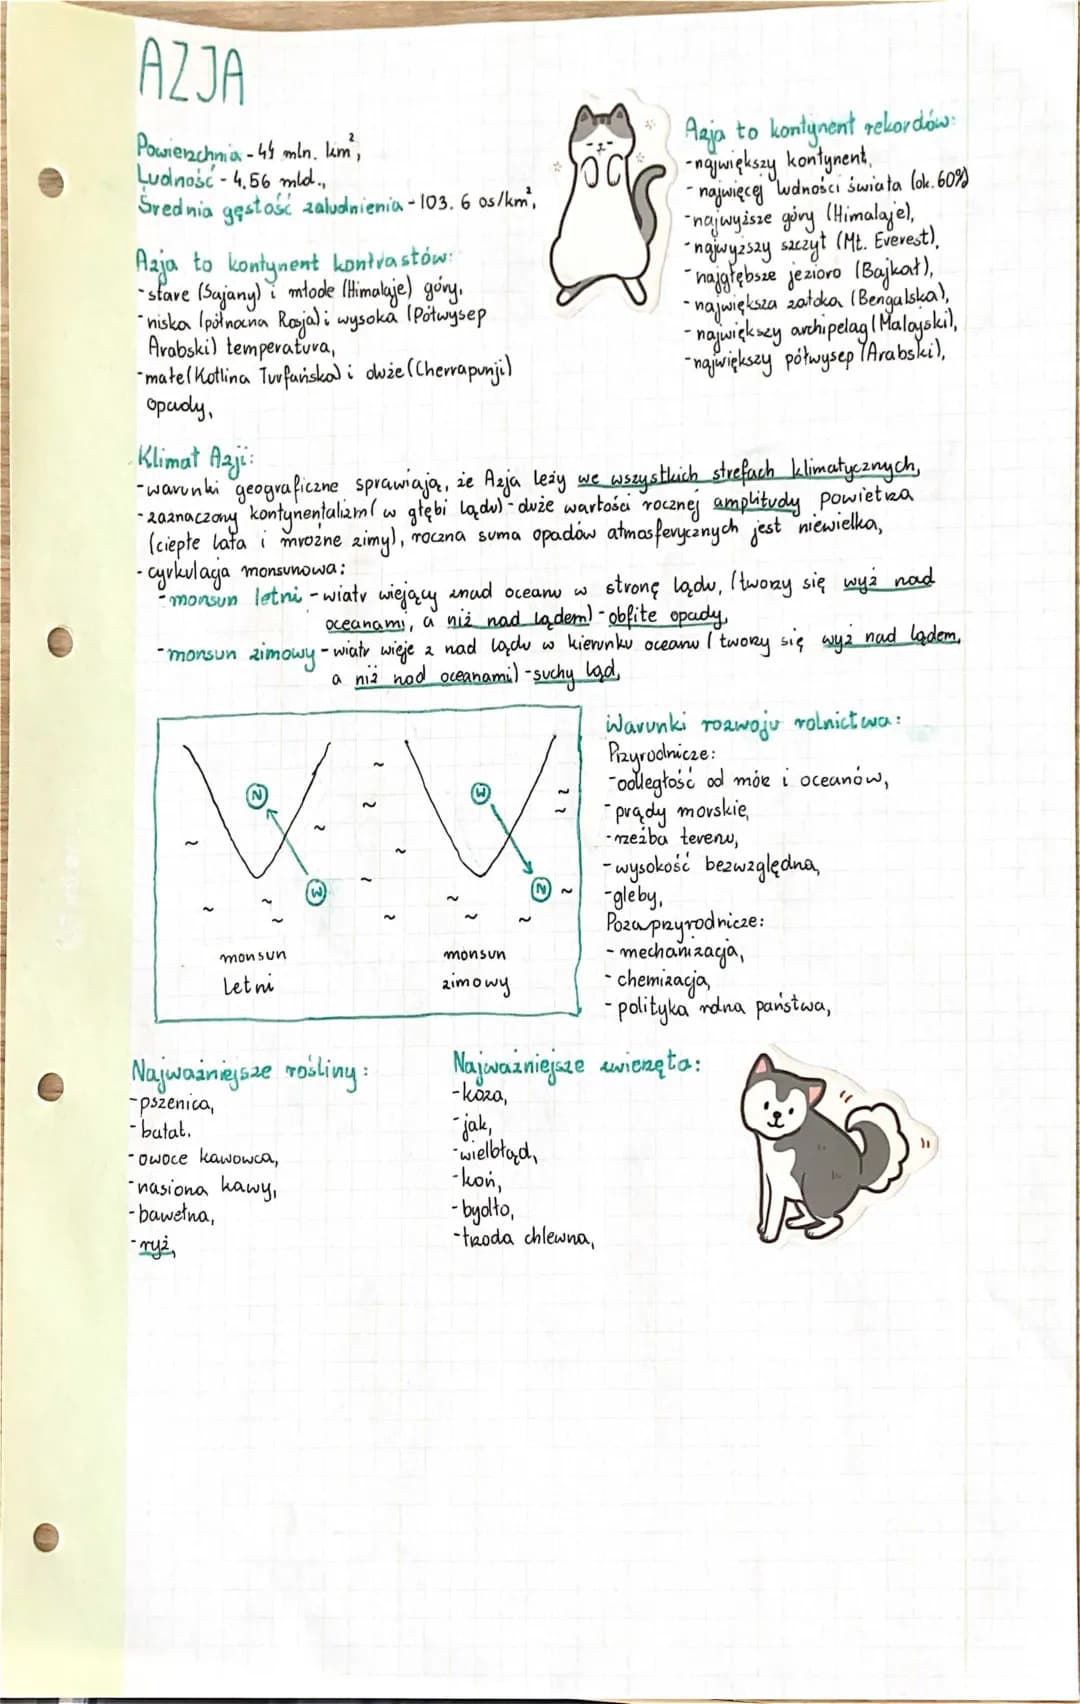 AZJA
Powierzchnia - 44 mln. km²,
Ludność - 4,56 mld.,
Średnia gęstość zaludnienia - 103.6 os/km²,
Azja to kontynent kontrastów:
- stare (Sajany) i młode (Himalaje) góry,
- niska (północna Rosja) i wysoka (Półwysep
Arabski) temperatura,
- małe (Kotlina Turfańska) i duże (Cherrapunji)
opady,
Azja to kontynent rekordów:
- największy kontynent,
- najwięcej ludności świata (ok. 60%)
- najwyższe góry (Himalaje),
- najwyższy szczyt (Mt. Everest),
- najgłębsze jezioro (Bajkał),
- największa zatoka (Bengalska),
- największy archipelag (Malajski),
- największy półwysep (Arabski),
Klimat Azji:
- warunki geograficzne sprawiają, że Azja leży we wszystkich strefach klimatycznych,
- zaznaczony kontynentalizm (w głębi lądu) - duże wartości rocznej amplitudy powietrza
(ciepłe lata i mroźne zimy), roczna suma opadów atmosferycznych jest niewielka,
- cyrkulacja monsunowa:
- monsun letni - wiatr wiejący znad oceanu w stronę lądu, (tworzy się wyż nad
oceanami, a niż nad lądem) - obfite opady,
- monsun zimowy - wiatr wieje z nad lądu w kierunku oceanu (tworzy się wyż nad lądem,
a niż nad oceanami) - suchy ląd,
N
W
W
N
monsun
letni
monsun
zimowy
Warunki rozwoju rolnictwa:
Przyrodnicze:
- odległość od mórz i oceanów,
- prądy morskie,
- rzeźba terenu,
- wysokość bezwzględna,
- gleby,
Pozaprzyrodnicze:
- mechanizacja,
- chemizacja,
- polityka rolna państwa,
Najważniejsze rośliny:
- pszenica,
- batat,
- owoce kawowca,
- nasiona kawy,
- bawełna,
- ryż,
Najważniejsze zwierzęta:
- koza,
- jak,
- wielbłąd,
- koń,
- bydło,
- trzoda chlewna,